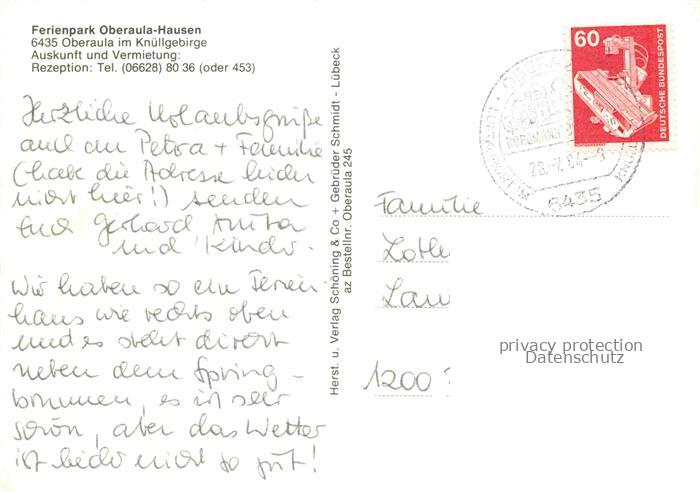 Ferienpark Oberaula-Hausen
6435 Oberaula im Knüllgebirge
Auskunft und Vermietung:
Rezeption: Tel. (06628) 80 36 (oder 453)
Herzliche Urlaubsgrüße
auch an Petra + Familie
(habe die Adresse leider
nicht hier!) senden
Euch Gerhard Anita
und Kinder.
Wir haben so ein Ferien-
haus wie rechts oben
und es steht direkt
neben dem Spring-
brunnen, es ist sehr
schön, aber das Wetter
ist leider nicht so gut!
Herst. u. Verlag Schöning & Co + Gebrüder Schmidt - Lübeck
az Bestellnr. Oberaula 245
60
DEUTSCHE BUNDESPOST
6435
Familie
Lothe
Lau
1200
privacy protection
Datenschutz